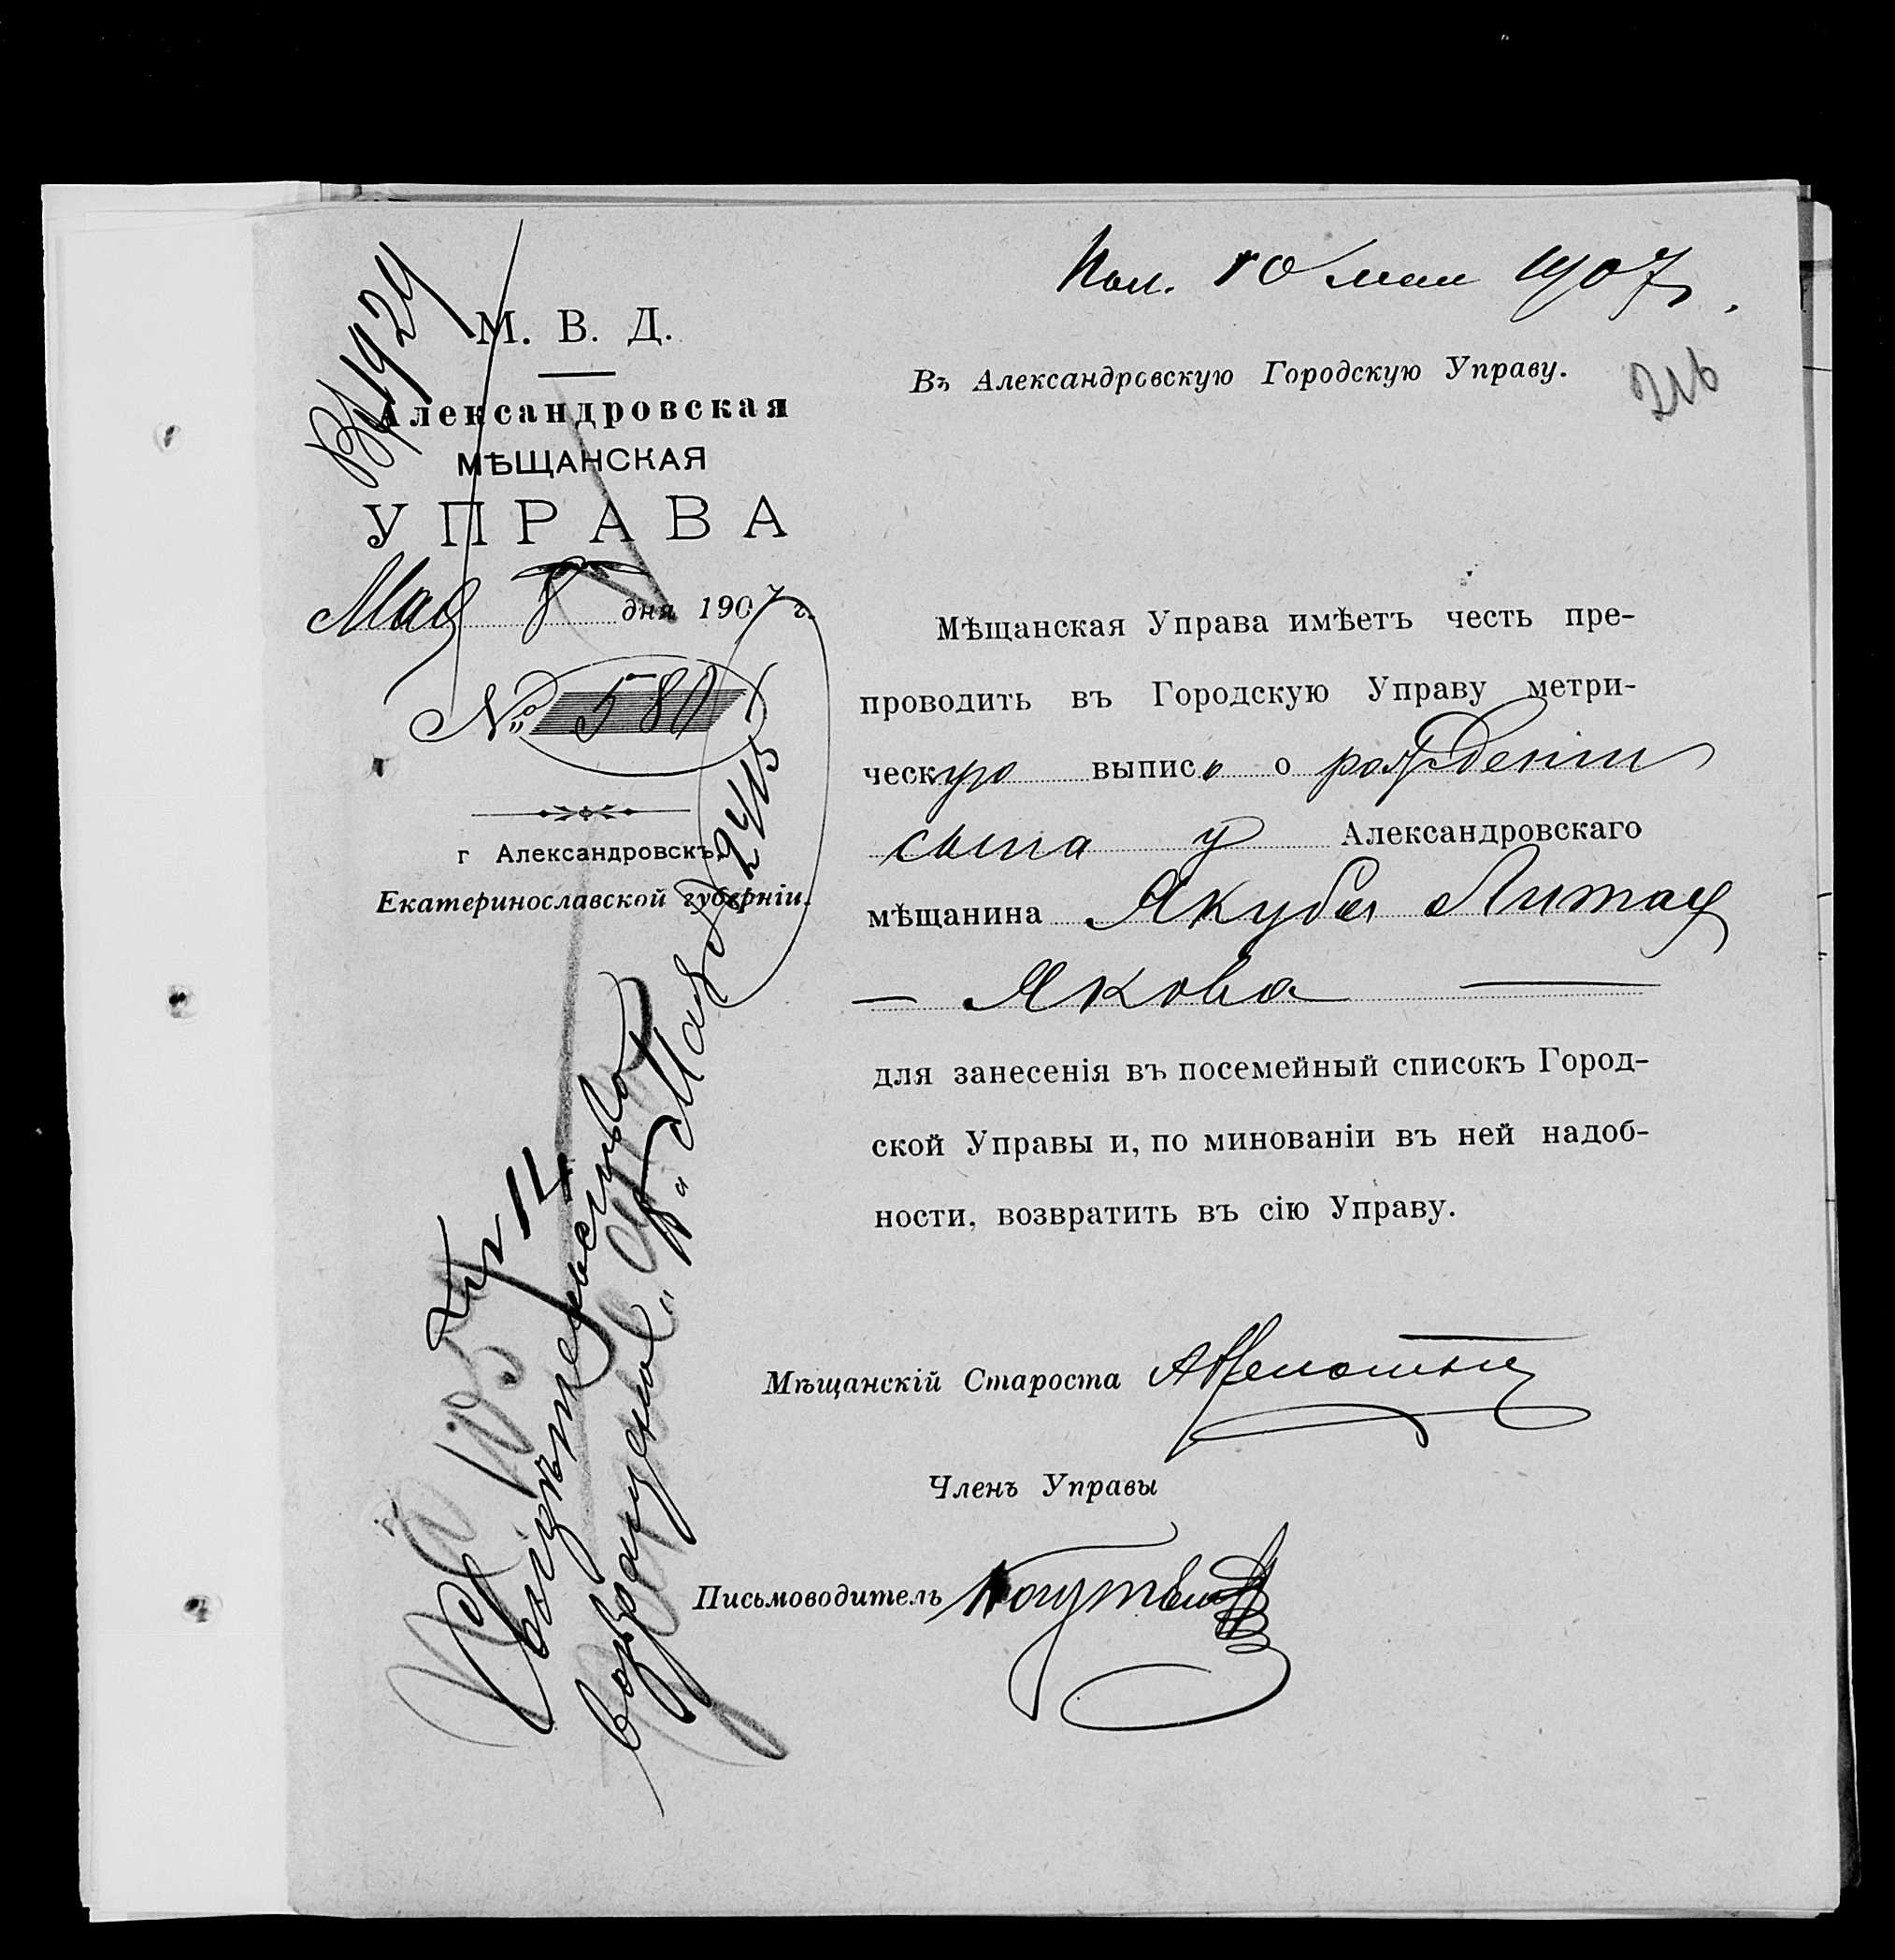 Пол. 10 мая 1907
216
В. 1924
М. В. Д.
Александровская
МѢЩАНСКАЯ
УПРАВА
Мая 8 дня 1907 г.
№ 580
г Александровскъ,
Екатеринославской губерніи.
Въ Александровскую Городскую Управу.
Мѣщанская Управа имѣетъ честь пре-
проводить въ Городскую Управу метри-
ческую выпись о рожденіи
сына у Александровскаго
мѣщанина Якуба Литая
— Якова —
для занесенія въ посемейный списокъ Город-
ской Управы и, по минованіи въ ней надоб-
ности, возвратить въ сію Управу.
Мѣщанскій Староста
Членъ Управы
Письмоводитель
Свидѣтельство
возвращено Мая